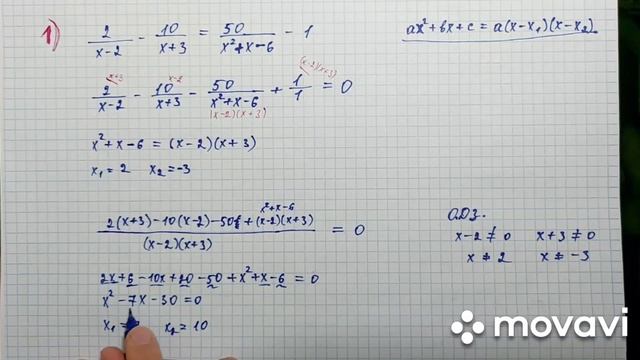 1) 2/(x-2) - 10/(x+3) = 50/(x²+x-6) - 1
ax²+bx+c = a(x-x₁)(x-x₂)
x+3 x-2 (x-2)(x+3)
2/(x-2) - 10/(x+3) - 50/(x²+x-6) + 1/1 = 0
(x-2)(x+3)
x²+x-6 = (x-2)(x+3)
x₁=2 x₂=-3
x²+x-6
(2(x+3)-10(x-2)-50+(x-2)(x+3))/((x-2)(x+3)) = 0
ОДЗ.
x-2≠0 x+3≠0
x≠2 x≠-3
2x+6-10x+20-50+x²+x-6=0
x²-7x-30=0
x₁= x₂=10
movavi